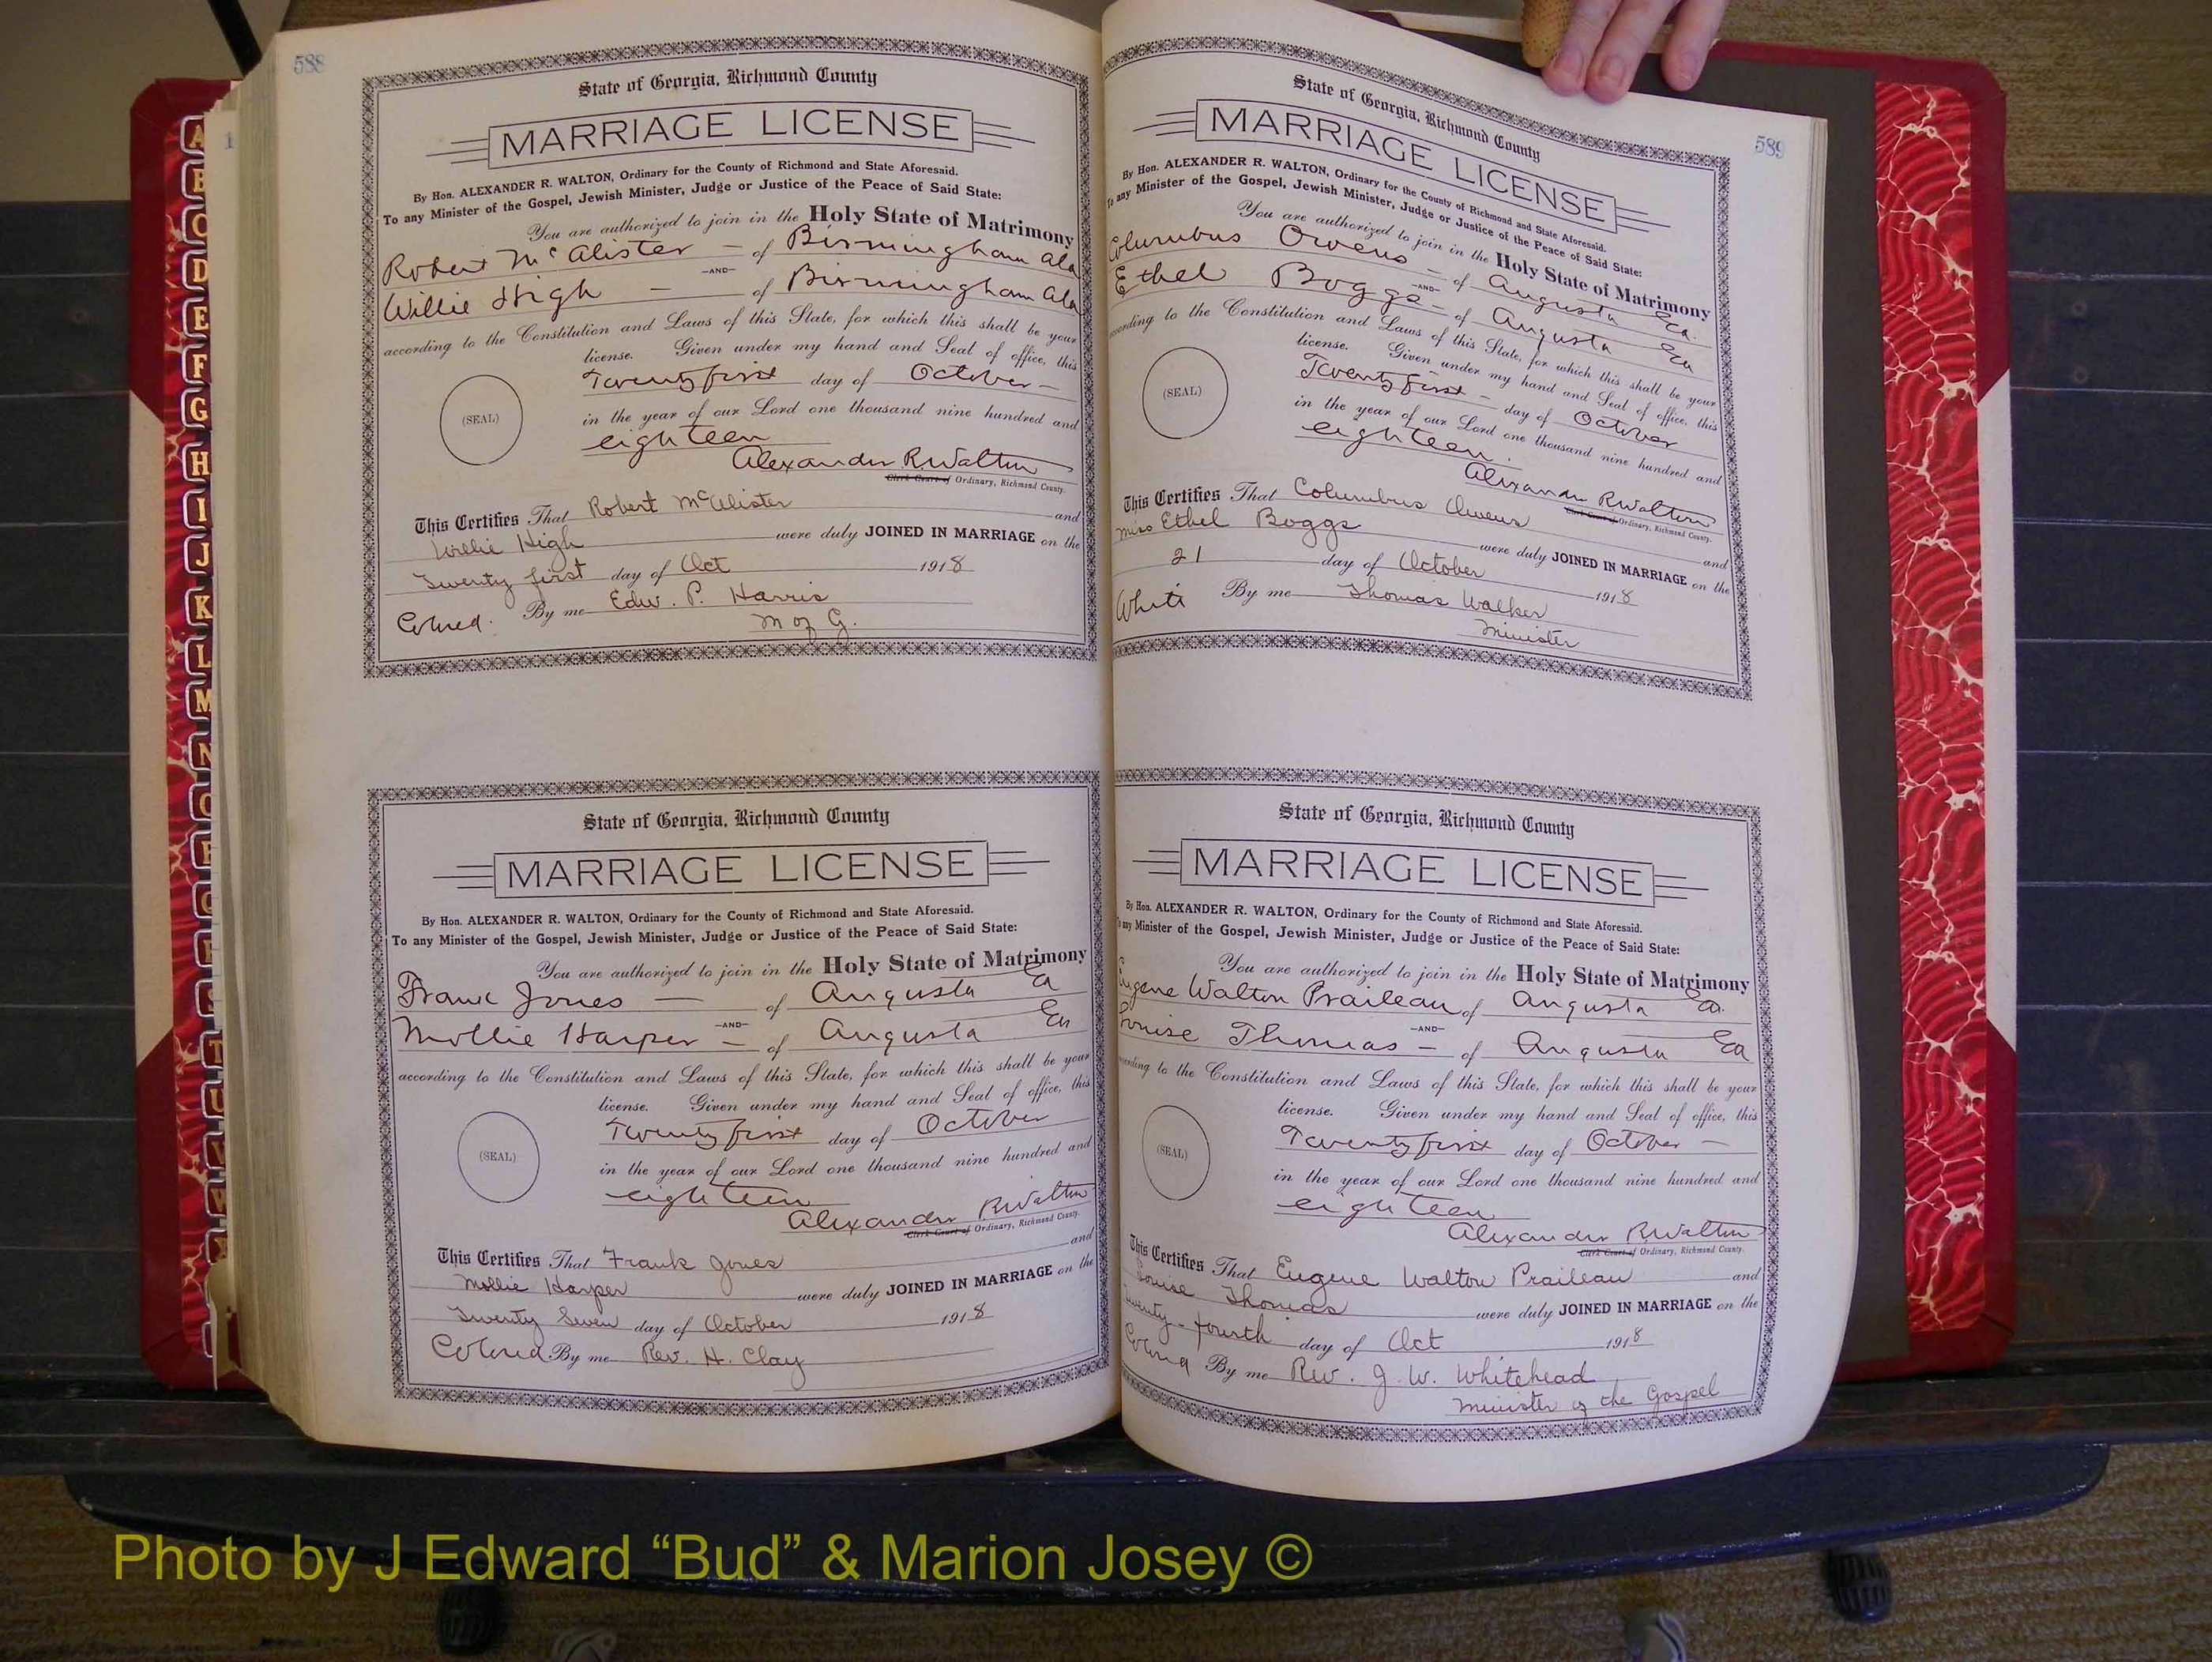 588
State of Georgia, Richmond County
MARRIAGE LICENSE
By Hon. ALEXANDER R. WALTON, Ordinary for the County of Richmond and State Aforesaid.
To any Minister of the Gospel, Jewish Minister, Judge or Justice of the Peace of Said State:
You are authorized to join in the Holy State of Matrimony
Robert McAlister — of Birmingham Ala
—AND—
Willie High — of Birmingham Ala
according to the Constitution and Laws of this State, for which this shall be your
license. Given under my hand and Seal of office, this
Twenty first day of October —
(SEAL)
in the year of our Lord one thousand nine hundred and
eighteen
Alexander R Walton
Clerk Court of Ordinary, Richmond County.
This Certifies That Robert McAlister and
Willie High were duly JOINED IN MARRIAGE on the
Twenty first day of Oct 1918
Colored. By me Edw. P. Harris
M of G.
State of Georgia, Richmond County
MARRIAGE LICENSE
By Hon. ALEXANDER R. WALTON, Ordinary for the County of Richmond and State Aforesaid.
To any Minister of the Gospel, Jewish Minister, Judge or Justice of the Peace of Said State:
You are authorized to join in the Holy State of Matrimony
Frank Jones — of Augusta Ga
—AND—
Mollie Harper — of Augusta Ga
according to the Constitution and Laws of this State, for which this shall be your
license. Given under my hand and Seal of office, this
Twenty first day of October
(SEAL)
in the year of our Lord one thousand nine hundred and
eighteen
Alexander R Walton
Clerk Court of Ordinary, Richmond County.
This Certifies That Frank Jones and
Mollie Harper were duly JOINED IN MARRIAGE on the
Twenty Seven day of October 1918
Colored By me Rev. H. Clay
589
State of Georgia, Richmond County
MARRIAGE LICENSE
By Hon. ALEXANDER R. WALTON, Ordinary for the County of Richmond and State Aforesaid.
To any Minister of the Gospel, Jewish Minister, Judge or Justice of the Peace of Said State:
You are authorized to join in the Holy State of Matrimony
Columbus Owens — of Augusta Ga.
—AND—
Ethel Boggs — of Augusta Ga
according to the Constitution and Laws of this State, for which this shall be your
license. Given under my hand and Seal of office, this
Twenty first — day of October
(SEAL)
in the year of our Lord one thousand nine hundred and
eighteen.
Alexander R Walton
Clerk Court of Ordinary, Richmond County.
This Certifies That Columbus Owens and
Miss Ethel Boggs were duly JOINED IN MARRIAGE on the
21 day of October 1918
White By me Thomas Walker
Minister
State of Georgia, Richmond County
MARRIAGE LICENSE
By Hon. ALEXANDER R. WALTON, Ordinary for the County of Richmond and State Aforesaid.
To any Minister of the Gospel, Jewish Minister, Judge or Justice of the Peace of Said State:
You are authorized to join in the Holy State of Matrimony
Eugene Walton Praileau of Augusta Ga.
—AND—
Louise Thomas — of Augusta Ga
according to the Constitution and Laws of this State, for which this shall be your
license. Given under my hand and Seal of office, this
Twenty first day of October —
(SEAL)
in the year of our Lord one thousand nine hundred and
eighteen
Alexander R Walton
Clerk Court of Ordinary, Richmond County.
This Certifies That Eugene Walton Praileau and
Louise Thomas were duly JOINED IN MARRIAGE on the
Twenty-fourth day of Oct 1918
Colored By me Rev. J. W. Whitehead
Minister of the Gospel
A
B
C
D
E
F
G
H
I
J
K
L
M
N
O
P
Q
R
S
T
U
V
W
Photo by J Edward “Bud” & Marion Josey ©